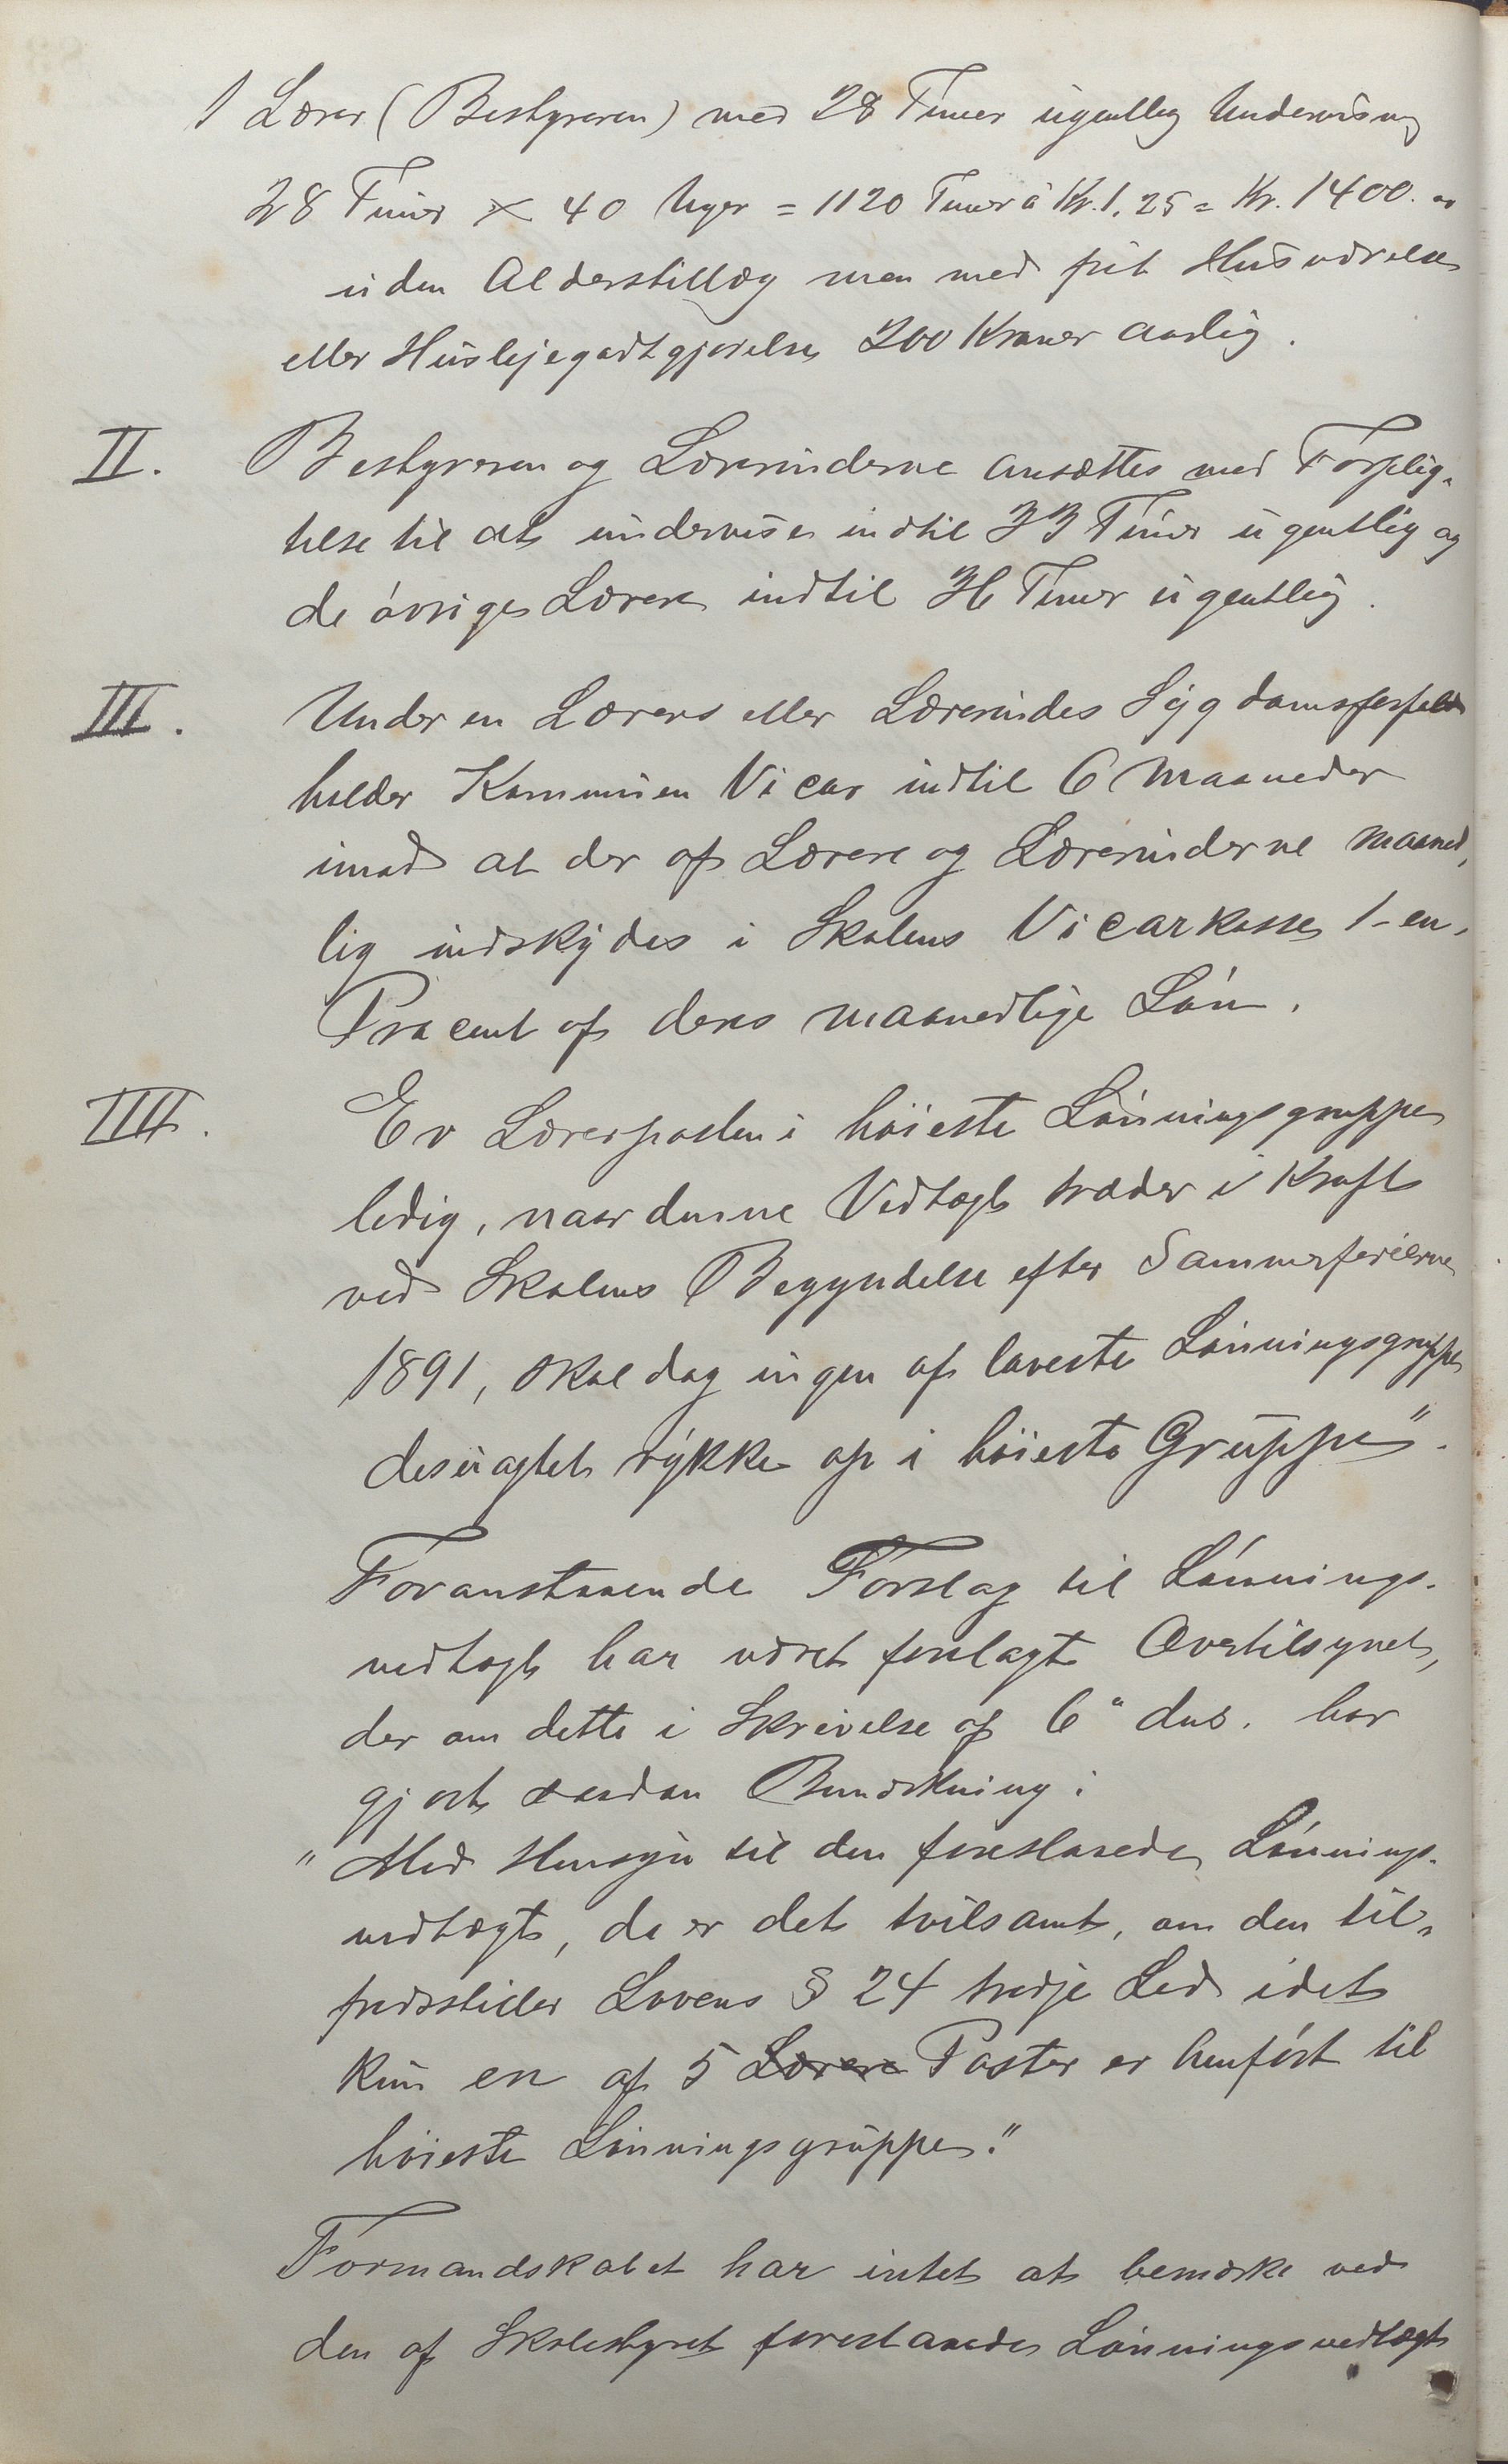 1 Lærer (Bestyreren) med 28 Timer ugentlig Undervisning
28 Timer × 40 Uger = 1120 Timer à Kr. 1,25 = Kr. 1400.00
uden Alderstillæg men med frit Husværelse
eller Huslejegodtgjørelse 200 Kroner aarlig.
II. Bestyreren og Lærerinderne ansættes med Forplig-
telse til at undervise indtil 33 Timer ugentlig og
de øvrige Lærere indtil 36 Timer ugentlig.
III. Under en Lærers eller Lærerindes Sygdomsforfald
holder Kommunen Vicar indtil 6 Maaneder
imod at der af Lærere og Lærerinderne maaned-
lig indskydes i Skolens Vicarkasse 1 - en -
Procent af deres maanedlige Løn.
IIII. Er Lærerposten i høieste Lønningsgruppe
ledig, naar denne Vedtægt træder i Kraft
ved Skolens Begyndelse efter Sommerferierne
1891, skal dog ingen af laveste Lønningsgruppe
desuagtet rykke op i høieste Gruppe".
Foranstaaende Forslag til Lønnings-
vedtægt har været forelagt Overtilsynet,
der om dette i Skrivelse af 6" ds. har
gjort saadan Bemærkning:
"Med Hensyn til den foreslaaede Lønnings-
vedtægt, da er det tvilsomt, om den til-
fredsstiller Lovens § 24 tredje Led idet
kun en af 5 Lærere Poster er henført til
høieste Lønningsgruppe."
Formandskabet har intet at bemærke ved
den af Skolestyret foreslaaede Lønningsvedtægt